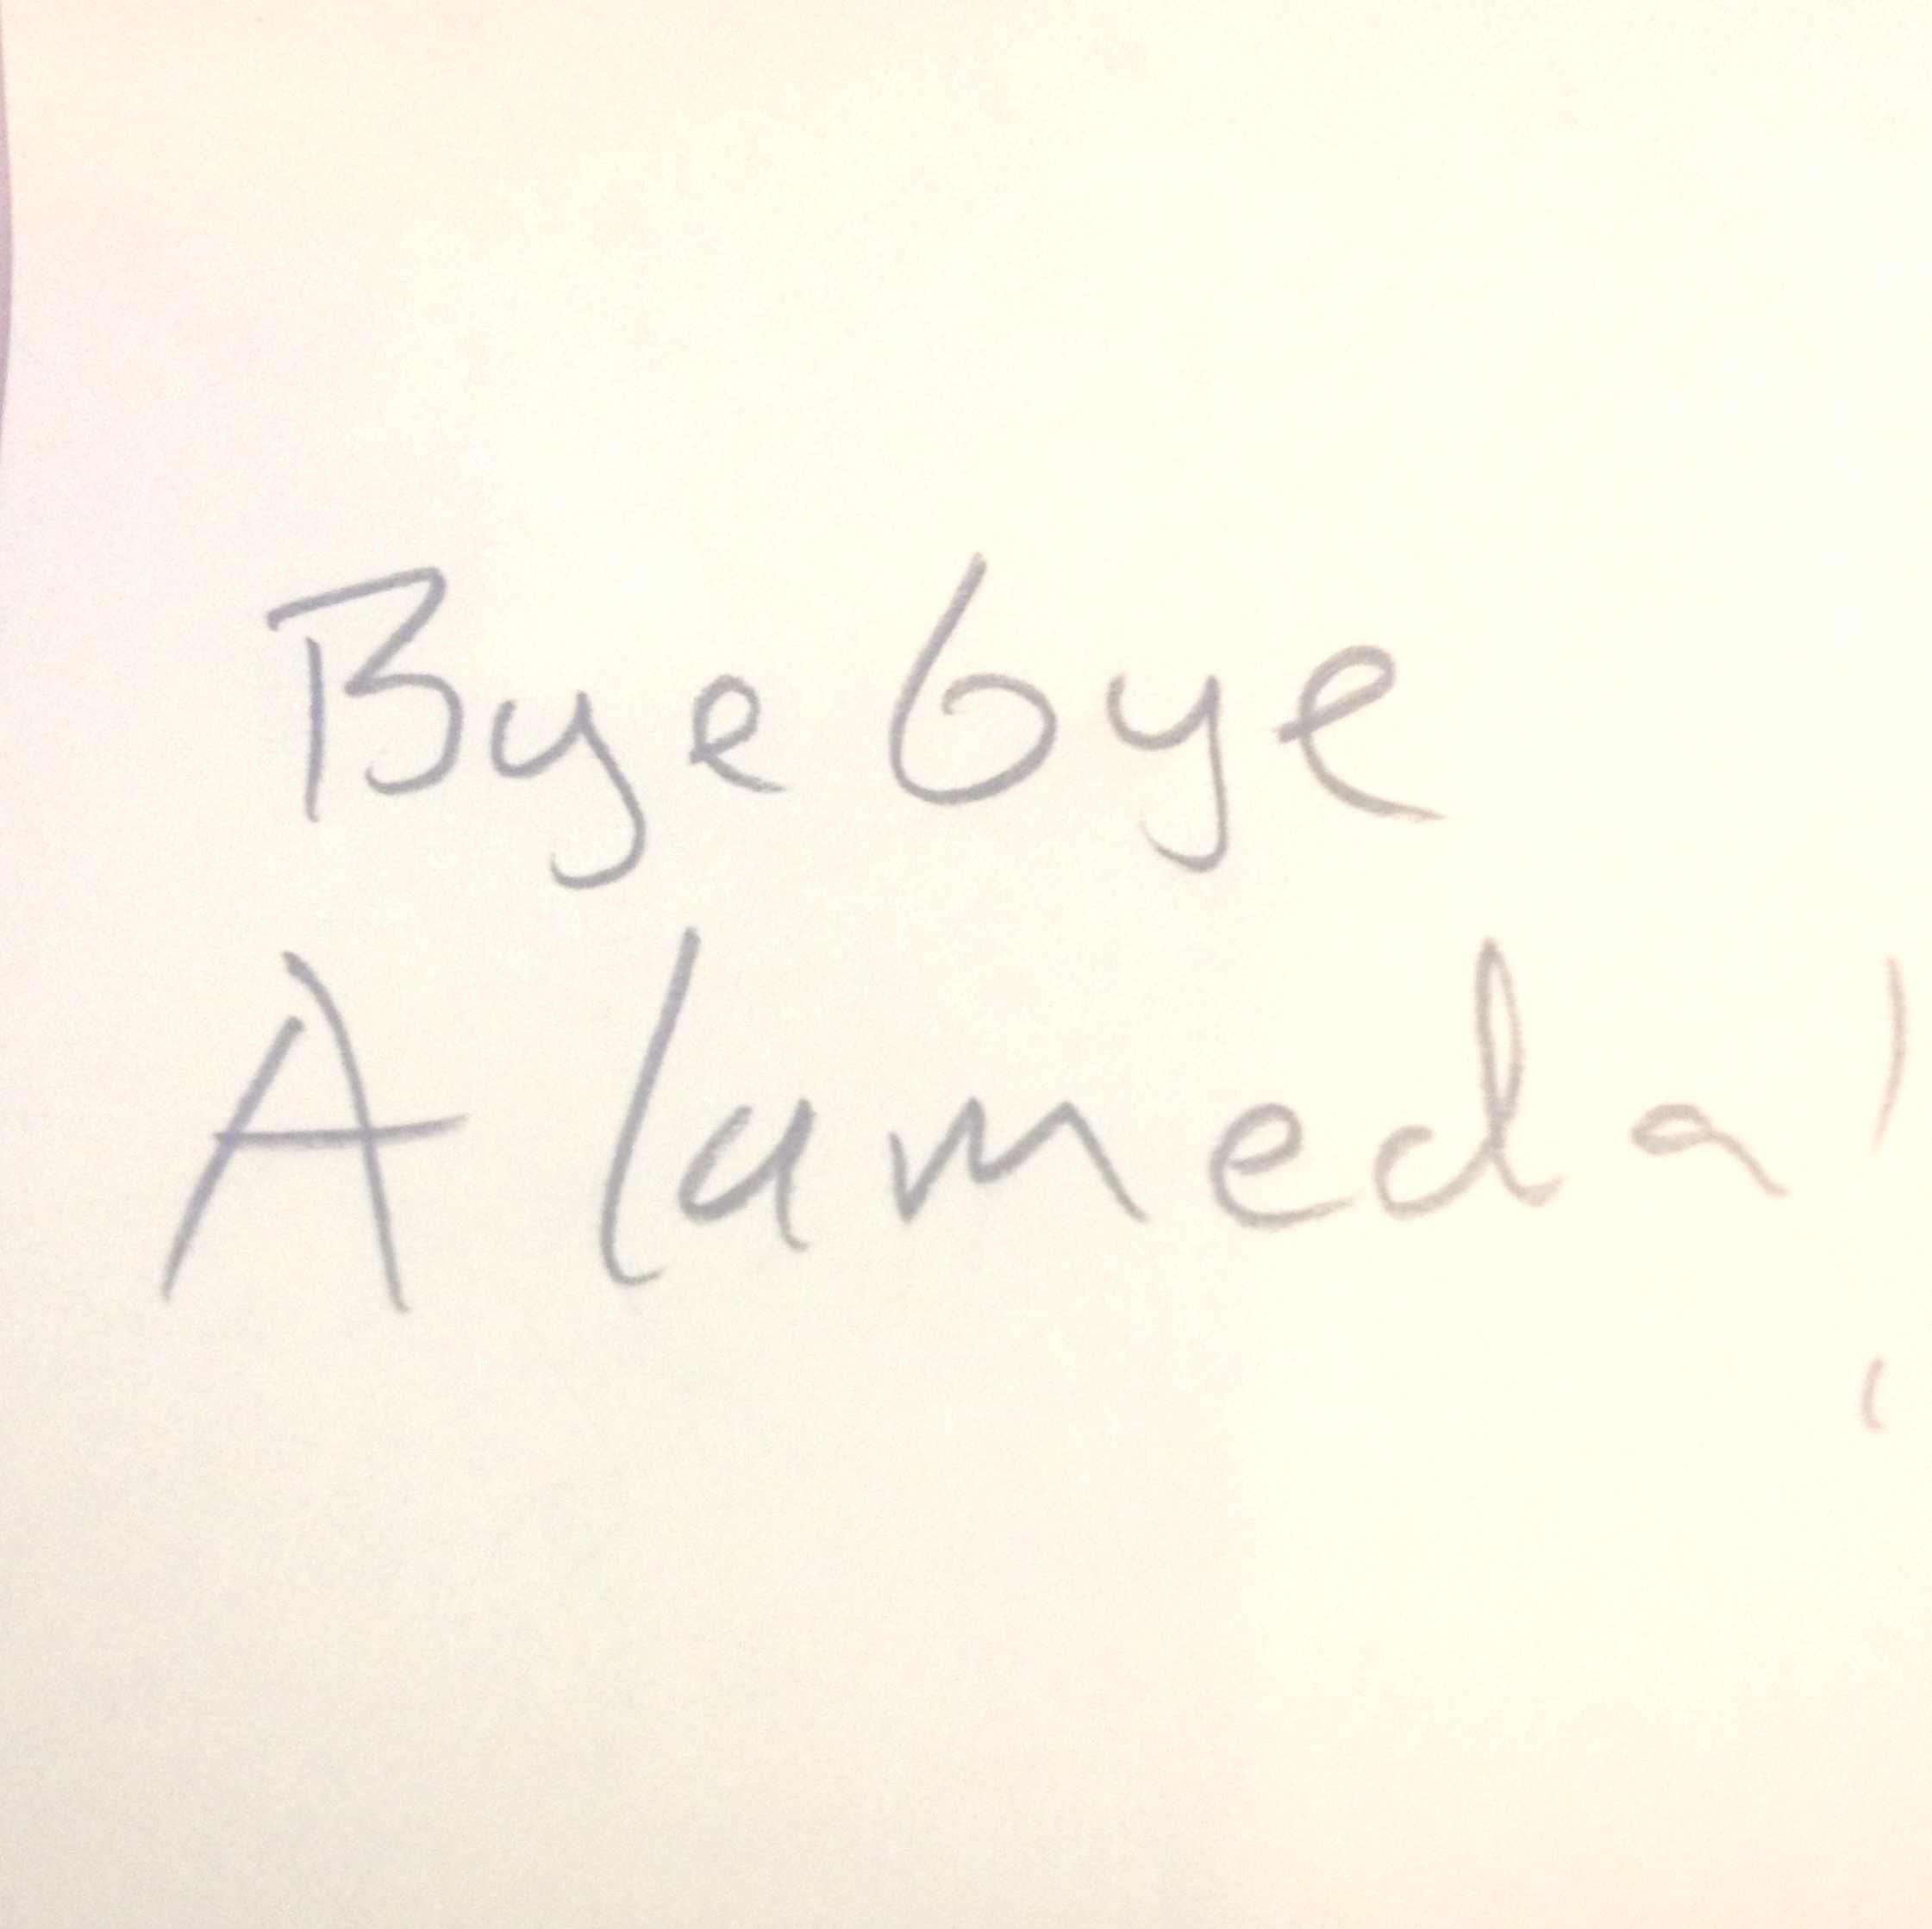 Bye bye
Alameda!